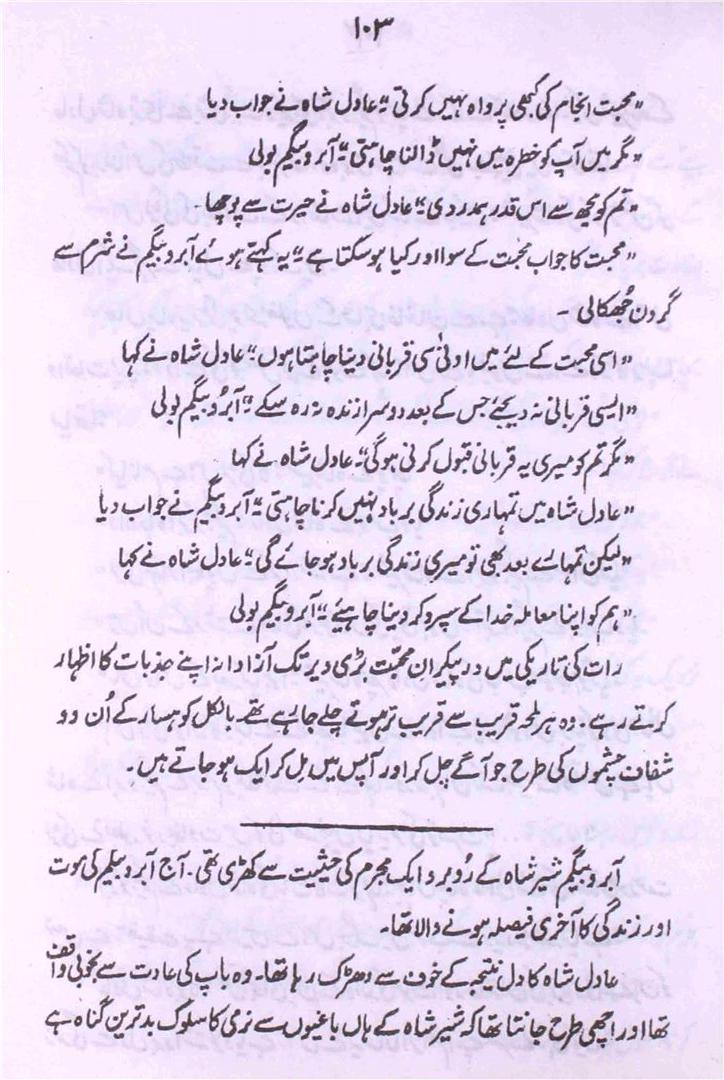 ۱۰۳
"محبت انجام کی کبھی پرواہ نہیں کرتی"۔ عادل شاہ نے جواب دیا
"مگر میں آپ کو خطرہ میں نہیں ڈالنا چاہتی"۔ آبرو بیگم بولی
"تم کو مجھ سے اس قدر ہمدردی"؟ عادل شاہ نے حیرت سے پوچھا۔
"محبت کا جواب محبت کے سوا اور کیا ہو سکتا ہے"۔ یہ کہتے ہوئے آبرو بیگم نے شرم سے
گردن جُھکالی۔
"اسی محبت کے لئے میں ادنیٰ سی قربانی دینا چاہتا ہوں"۔ عادل شاہ نے کہا
"ایسی قربانی نہ دیجئے جس کے بعد دوسرا زندہ نہ رہ سکے"۔ آبرُو بیگم بولی
"مگر تم کو میری یہ قربانی قبول کرنی ہوگی"۔ عادل شاہ نے کہا
"عادل شاہ میں تمہاری زندگی برباد نہیں کرنا چاہتی"۔ آبرو بیگم نے جواب دیا
"لیکن تمہارے بعد بھی تو میری زندگی برباد ہو جائے گی"۔ عادل شاہ نے کہا
"ہم کو اپنا معاملہ خدا کے سپرد کر دینا چاہیئے"۔ آبرو بیگم بولی
رات کی تاریکی میں دو پیکرانِ محبّت بڑی دیر تک آزادانہ اپنے جذبات کا اظہار
کرتے رہے۔ وہ ہر لمحہ قریب سے قریب تر ہوتے چلے جا رہے تھے۔ بالکل کوہسار کے اُن دو
شفاف چشموں کی طرح جو آگے چل کر اور آپس میں مل کر ایک ہو جاتے ہیں۔
آبرو بیگم شیر شاہ کے رُو برو ایک مجرم کی حیثیت سے کھڑی تھی۔ آج آبرو بیگم کی موت
اور زندگی کا آخری فیصلہ ہونے والا تھا۔
عادل شاہ کا دل نتیجہ کے خوف سے دھڑک رہا تھا۔ وہ باپ کی عادت سے بخوبی واقف
تھا اور اچھی طرح جانتا تھا کہ شیر شاہ کے ہاں باغیوں سے نرمی کا سلوک بدترین گناہ ہے